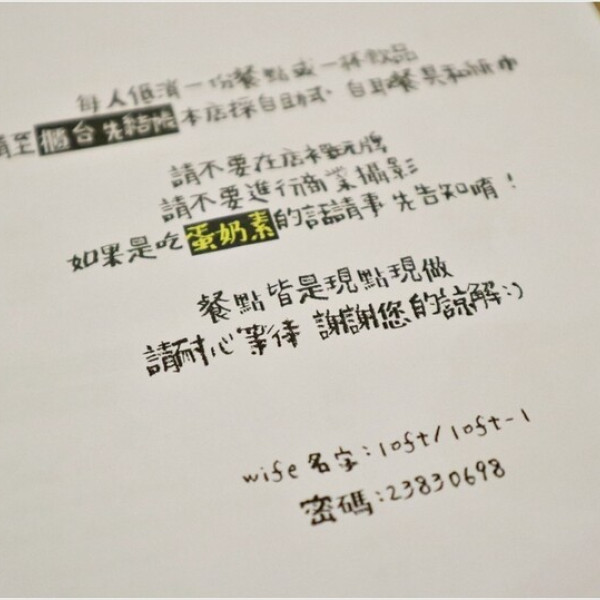 每人低消一份餐點或一杯飲品
請至櫃台先結帳本店採自助式、自取餐具和紙巾
請不要在店裡玩牌
請不要進行商業攝影
如果是吃蛋奶素的話請事先告知唷！
餐點皆是現點現做
請耐心等待 謝謝您的諒解:)
wife名字：loft/loft-1
密碼：23830698